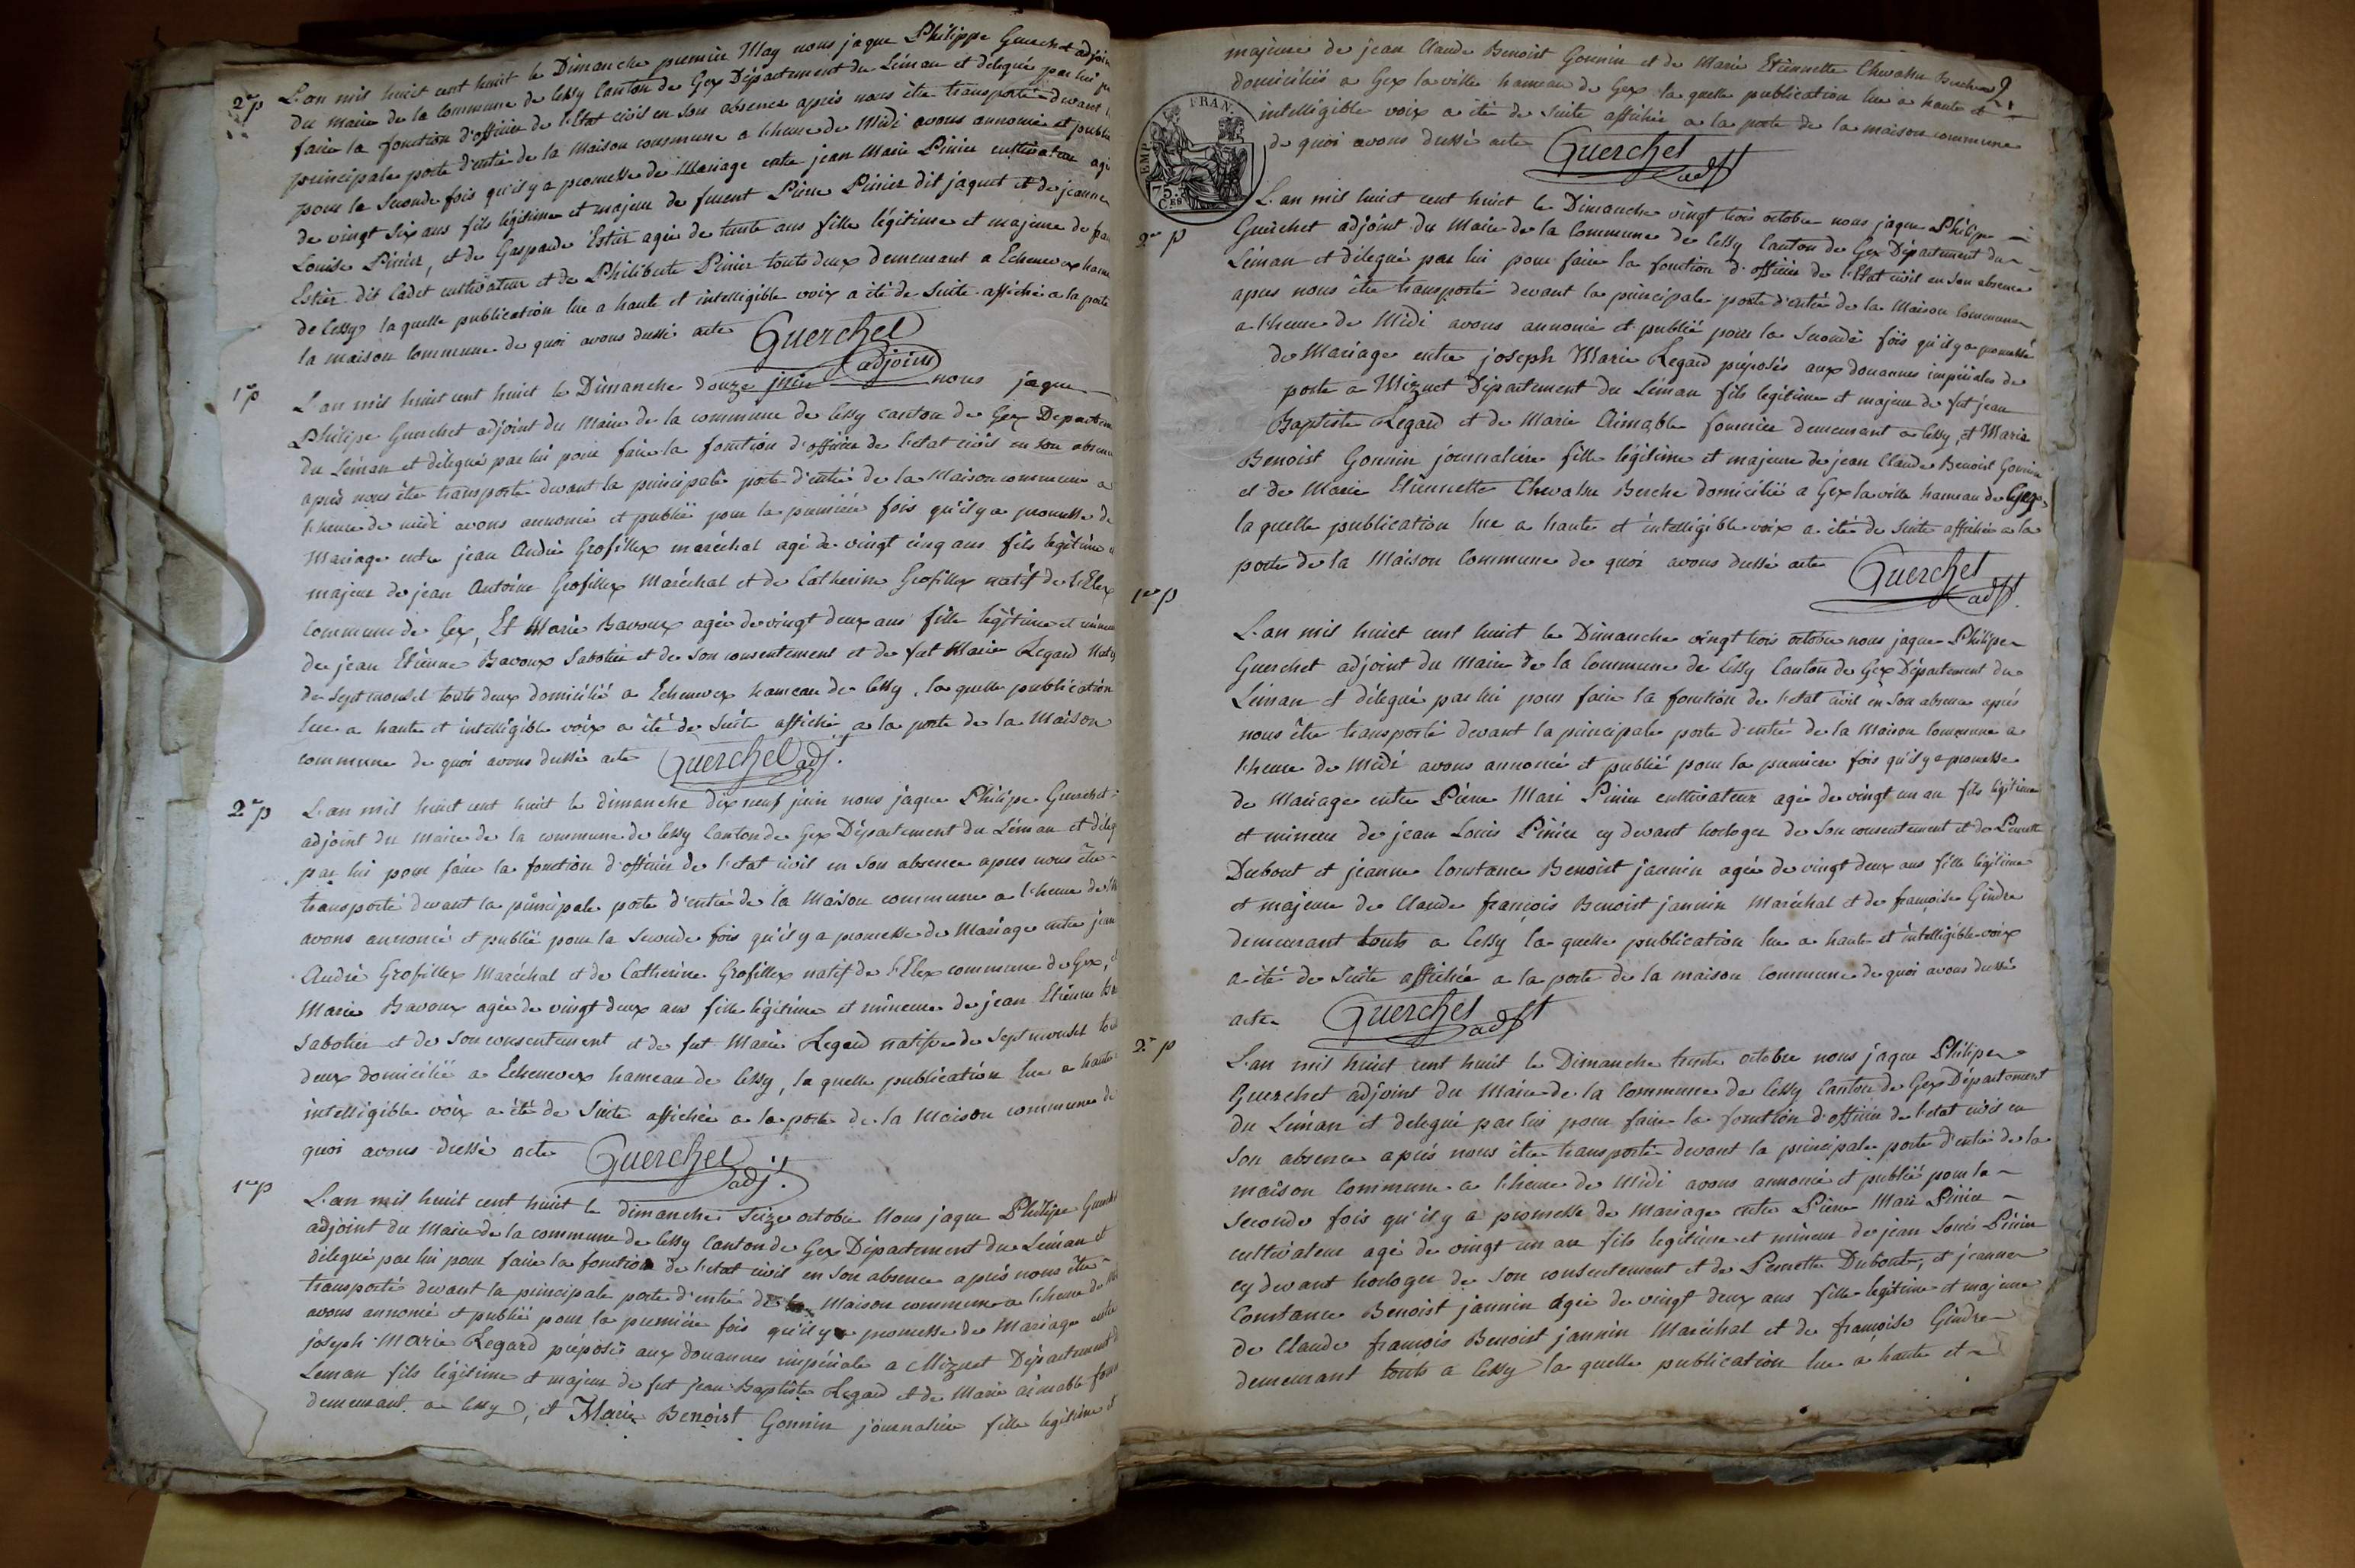 2.e p
L'an mil huit cent huit le Dimanche premier May nous jaque Philippe Guerchet adjoin
du maire de la Commune de Cessy Canton de Gex Département du Léman et délegué par lui
faire la fonction d'officier de l'Etat civil en son absence après nous être transporté devant
principale porte d'entré de la Maison commune a l'heure de Midi avons annoncé et publié
pour la Seconde fois qu'il y a promesse de Mariage entre jean Marie Pinier cultivateur agé
de vingt six ans fils légitime et majeur de Pierre Pinier dit jaquet et de jeanne
Louise Pinier, et de Gasparde Estier agée de trente ans fille légitime et majeure de
Estier dit Cadet cultivateur et de Philiberte Pinier touts deux demeurant a Echenevex
de Cessy la quelle publication lue a haute et intelligible voix a été de Suite affichée a la porte
la maison Commune de quoi avons dressé acte Guerchet
adjoint
1.er p
L'an mil huit cent huit le Dimanche douze juin nous jaque
Philipe Guerchet adjoint du Maire de la commune de Cessy canton de Gex Departem
du Léman et délegué par lui pour faire la fonction d'officier de l'etat civil en son absence
après nous être transporté devant la principale porte d'entré de la Maison commune a
l'heure de midi avons annoncé et publié pour la première fois qu'il y a promesse de
Mariage entre jean André Grosfillex maréchal agé de vingt cinq ans fils légitime
majeur de jean Antoine Grosfillex Maréchal et de Catherine Grosfillex natif de l'Elex
Commune de Gex, Et Marie Bavoux agée de vingt deux ans fille légitime et
de jean Etienne Bavoux Sabotier et de Son consentement et de fut Marie Regard
de Septmoncel touts deux domicilié a Echenevex hameau de Cessy, la quelle publication
lue a haute et intelligible voix a été de Suite affiché a la porte de la Maison
commune de quoi avons dressé acte Guerchet adj.t
2.e p
L'an mil huit cent huit le dimanche dix neuf juin nous jaque Philipe Guerchet
adjoint du Maire de la commune de Cessy Canton de Gex Département du Léman et délég
par lui pour faire la fonction d'officier de l'etat civil en Son absence apres nous être
transporté devant la principale porte d'entré de la Maison commune a l'heure de
avons annoncé et publié pour la Seconde fois qu'il y a promesse de Mariage entre jean
André Grosfillex Maréchal et de Catherine Grosfillex natif de l'Elex commune de Gex,
Marie Bavoux agée de vingt deux ans fille légitime et mineure de jean Etienne
Sabotier et de Son consentement et de fut Marie Regard native de Septmoncel
deux domicilié a Echenevex hameau de Cessy, la quelle publication lue a haute
intelligible voix a été de Suite affichée a la porte de la Maison commune de
quoi avons dressé acte Guerchet
adj.t
1.er p
L'an mil huit cent huit le dimanche Seize octobre Nous jaque Philipe
adjoint du Maire de la commune de Cessy Canton de Gex Département du Léman et
délegué par lui pour faire la fonction de l'etat civil en Son absence après nous être
transporté devant la principale porte d'entré de la Maison commune a l'heure de
avons annoncé et publié pour la première fois qu'il y a promesse de Mariage entre
joseph Marie Regard préposé aux douannes impériale a Mizuet Département
Leman fils légitime et majeur de fut jean Baptiste Regard et de Marie aimable
demeurant a Cessy, et Marie Benoist Gonnin journalière fille légitime
majeure de jean Claude Benoist Gonnin et de Marie Etiennette
domiciliés a Gex la ville hameau de Gex la quelle publication lue a haute et
intelligible voix a été de Suite affichée a la porte de la maison commune
de quoi avons dressé acte Guerchet
adjt
FRAN.
EMP.
75.
CES
2.e p
L'an mil huit cent huit le Dimanche vingt trois octobre nous jaque Philipe
Guerchet adjoint du Maire de la Commune de Cessy Canton de Gex Département du
Léman et délegué par lui pour faire la fonction d'officier de l'Etat civil en Son absence
apres nous être transporté devant la principale porte d'entré de la Maison Commune
a l'heure de Midi avons annoncé et publié pour la Seconde fois qu'il y a promesse
de Mariage entre joseph Marie Regard préposés aux douannes impériales de
poste a Mizuet Département du Léman fils légitime et majeur de fut jean
Baptiste Regard et de Marie Aimable demeurant a Cessy, et Marie
Benoist Gonnin journalière fille légitime et majeure de jean Claude Benoist Gonnin
et de Marie Etiennette domicilié a Gex la ville hameau de Gex,
la quelle publication lue a haute et intelligible voix a été de Suite affichée a la
porte de la Maison Commune de quoi avons dressé acte Guerchet
adjt.
1.er p
L'an mil huit cent huit le Dimanche vingt trois octobre nous jaque Philipe
Guerchet adjoint du Maire de la Commune de Cessy Canton de Gex Département du
Léman et délegué par lui pour faire la fonction de l'etat civil en Son absence après
nous être transporté devant la principale porte d'entré de la Maison Commune a
l'heure de Midi avons annoncé et publié pour la premiere fois qu'il y a promesse
de Mariage entre Pierre Mari Pinier cultivateur agé de vingt un an fils légitime
et mineur de jean Louis Pinier cy devant horloger de Son consentement et de Pernette
Dubout et jeanne Constance Benoist jannin agée de vingt deux ans fille légitime
et majeure de Claude françois Benoist jannin Maréchal et de françoise Gindre
demeurant touts a Cessy la quelle publication lue a haute et intelligible voix
a été de Suite affichée a la porte de la maison Commune de quoi avons dressé
acte Guerchet adjt
2.e p
L'an mil huit cent huit le Dimanche trente octobre nous jaque Philipe
Guerchet adjoint du Maire de la Commune de Cessy Canton de Gex Département
du Léman et delegué par lui pour faire la fonction d'officier de l'etat civil en
Son absence après nous être transporté devant la principale porte d'entré de la
maison Commune a l'heure de Midi avons annoncé et publié pour la
Seconde fois qu'il y a promesse de Mariage entre Pierre Mari Pinier
cultivateur agé de vingt un an fils légitime et mineur de jean Louis Pinier
cy devant horloger de Son consentement et de Pernette Dubout, et jeanne
Constance Benoist jannin agée de vingt deux ans fille légitime et majeure
de Claude françois Benoist jannin Maréchal et de françoise Gindre
demeurant touts a Cessy la quelle publication lue a haute et